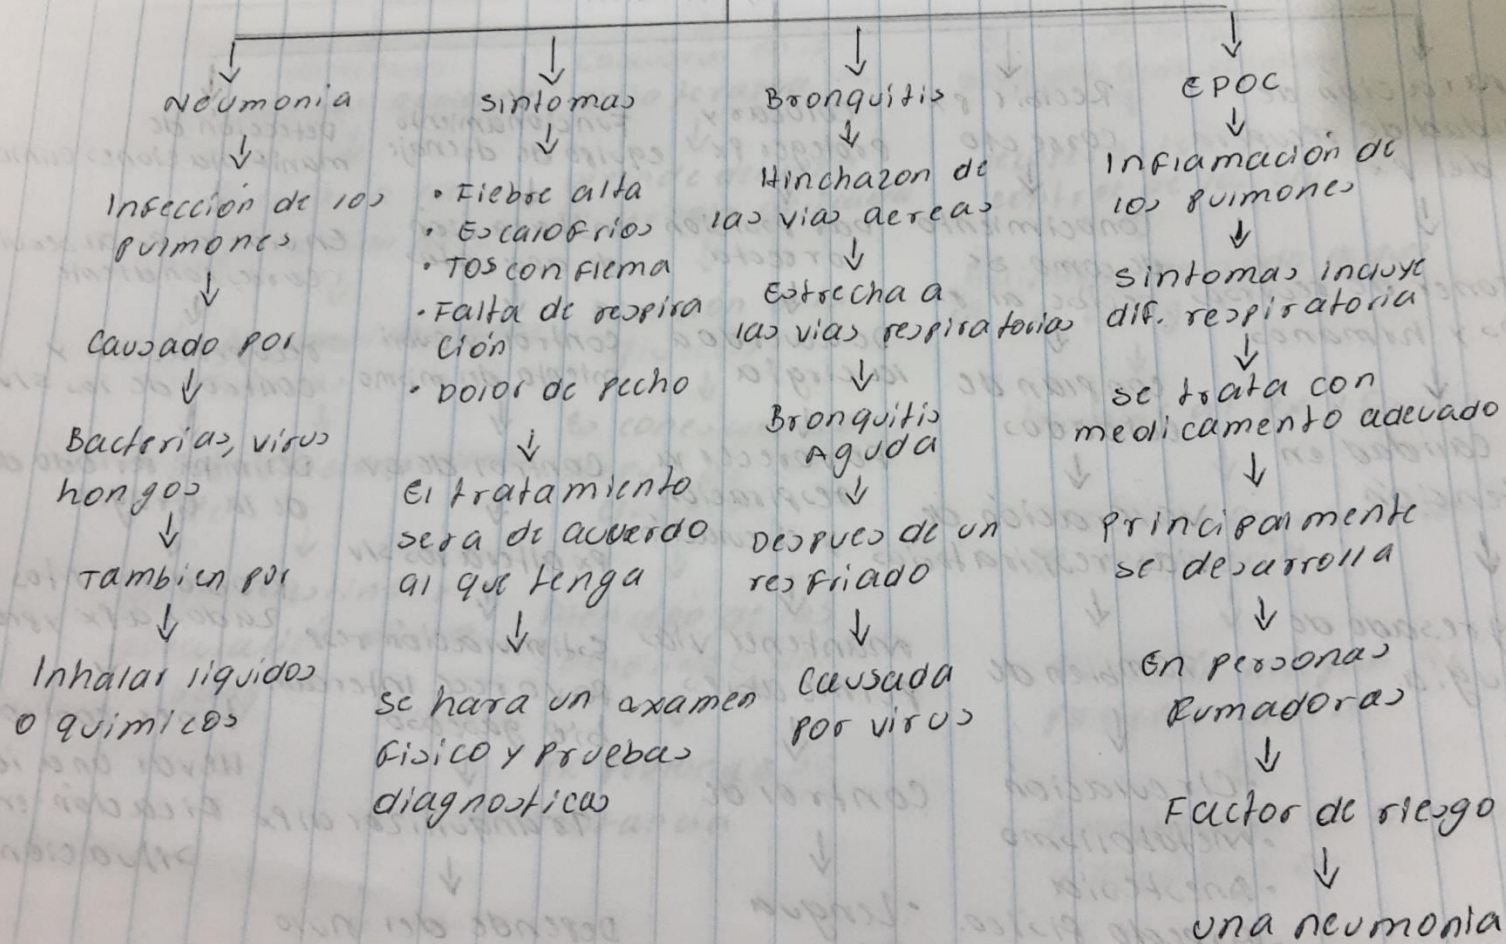 Neumonia
Infección de los
pulmones
Causado por
Bacterias, virus
hongos
Tambien por
Inhalar liquidos
o quimicos
Sintomas
• Fiebre alta
• Escalofrios
• Tos con flema
• Falta de respira
ción
• Dolor de pecho
El tratamiento
sera de acuerdo
al que tenga
se hara un axamen
fisico y pruebas
diagnosticas
Bronquitis
Hinchazon de
las vias aereas
Estrecha a
las vias respiratorias
Bronquitis
Aguda
Despues de un
resfriado
Causada
por virus
EPOC
Inflamación de
los pulmones
Sintomas incluye
dif. respiratoria
se trata con
medicamento adecuado
Principalmente
se desarrolla
En personas
Fumadoras
Factor de riesgo
una neumonia